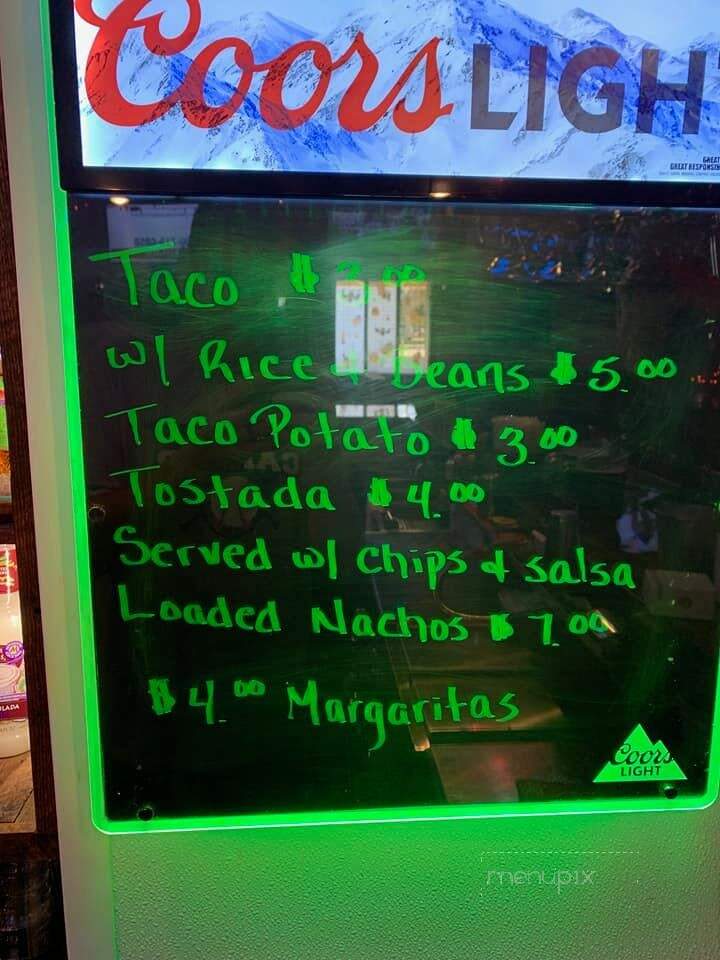 Coors LIGH
GREAT
GREAT RESPONSIB
Taco $
w/ Rice & beans $5.00
Taco Potato $3.00
Tostada $4.00
Served w/ chips & salsa
Loaded Nachos $7.00
$4.00 Margaritas
Coors
LIGHT
LADA
menupix